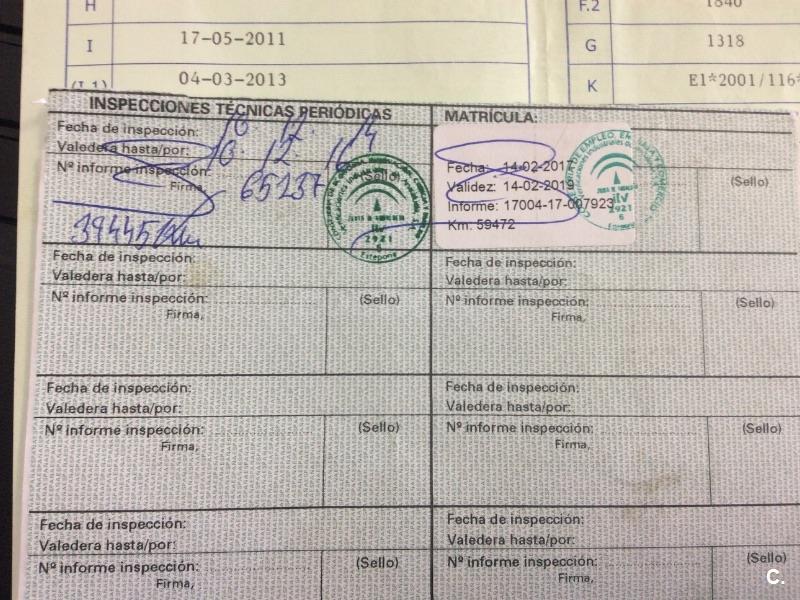 H
F.2 1840
I 17-05-2011
G 1318
(I.1) 04-03-2013
K E1*2001/116*
INSPECCIONES TÉCNICAS PERIÓDICAS
MATRÍCULA:
Fecha de inspección: 10. 12. 14
Valedera hasta/por: 10. 12. 16
Nº informe inspección: 65237
Firma,
(Sello)
39445 Km
2921
6
Estepona
Fecha: 14-02-2017
Validez: 14-02-2019
Informe: 17004-17-007923
Km. 59472
(Sello)
ITV
2921
6
Fecha de inspección:
Valedera hasta/por:
Nº informe inspección:
(Sello)
Firma,
Fecha de inspección:
Valedera hasta/por:
Nº informe inspección:
(Sello)
Firma,
Fecha de inspección:
Valedera hasta/por:
Nº informe inspección:
(Sello)
Firma,
Fecha de inspección:
Valedera hasta/por:
Nº informe inspección:
(Sello)
Firma,
Fecha de inspección:
Valedera hasta/por:
Nº informe inspección:
(Sello)
Firma,
Fecha de inspección:
Valedera hasta/por:
Nº informe inspección:
(Sello)
Firma,
C.